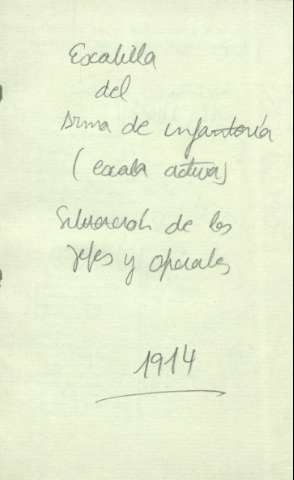 Escalilla
del
Arma de infantería
(escala activa)
Situación de los
Jefes y oficiales
1914